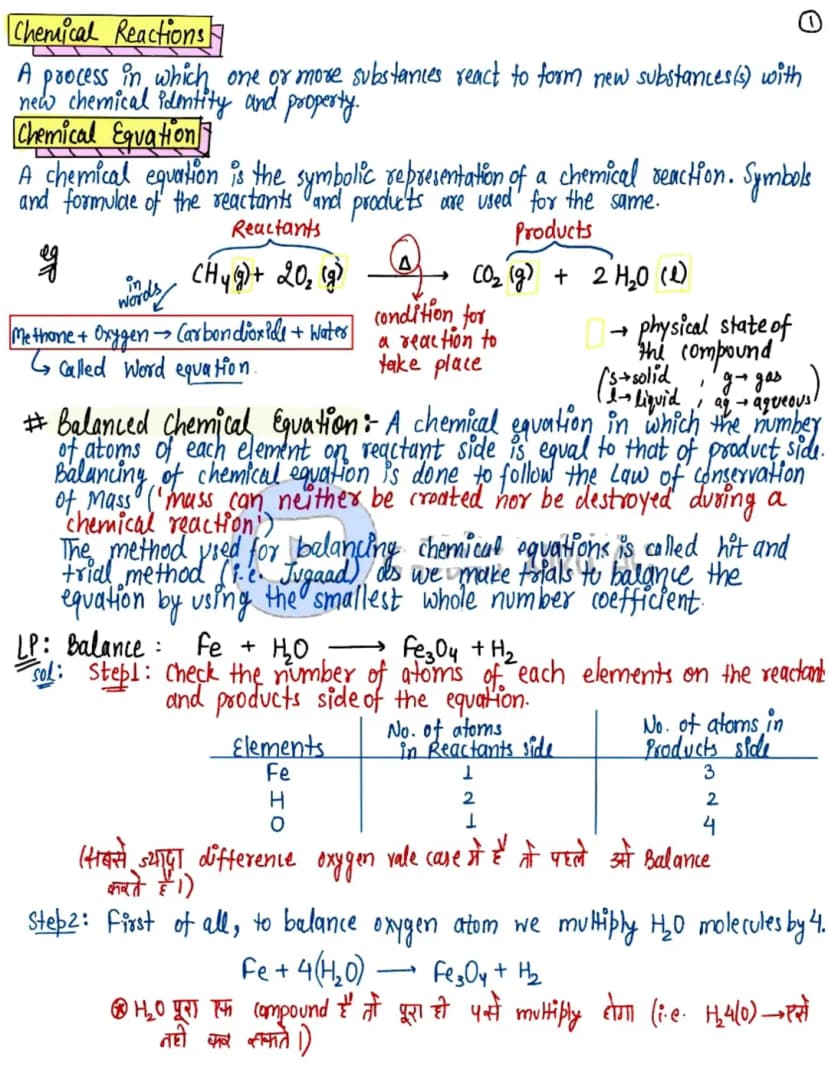 ①
Chemical Reactions
A process in which one or more substances react to form new substances(s) with
new chemical identity and property.
Chemical Equation
A chemical equation is the symbolic representation of a chemical reaction. Symbols
and formulae of the reactants and products are used for the same.
Reactants
Products
eg
CH4(g) + 2O2 (g) —Δ→ CO2 (g) + 2 H2O (l)
in words
Methane + Oxygen → Carbondioxide + Water
↳ Called Word equation.
condition for
a reaction to
take place
→ physical state of
the compound
(s→solid , g→ gas
l→ liquid , aq → aqueous)
# Balanced Chemical Equation :- A chemical equation in which the number
of atoms of each element on reactant side is equal to that of product side.
Balancing of chemical equation is done to follow the Law of Conservation
of Mass ('mass can neither be created nor be destroyed during a
chemical reaction')
The method used for balancing chemical equations is called hit and
trial method (i.e. Jugaad) as we make trials to balance the
equation by using the smallest whole number coefficient.
LP: Balance : Fe + H2O → Fe3O4 + H2
Sol: Step1: Check the number of atoms of each elements on the reactant
and products side of the equation.
Elements | No. of atoms in Reactants side | No. of atoms in Products side
Fe 1 3
H 2 2
O 1 4
(सबसे ज्यादा difference oxygen vale case में है तो पहले ओ Balance
करते हैं।)
Step2: First of all, to balance oxygen atom we multiply H2O molecules by 4.
Fe + 4(H2O) → Fe3O4 + H2
⊛ H2O पूरा एक compound है तो पूरा ही multiply होगा (i.e. H24(O) → एसे
नही कर सकते।)